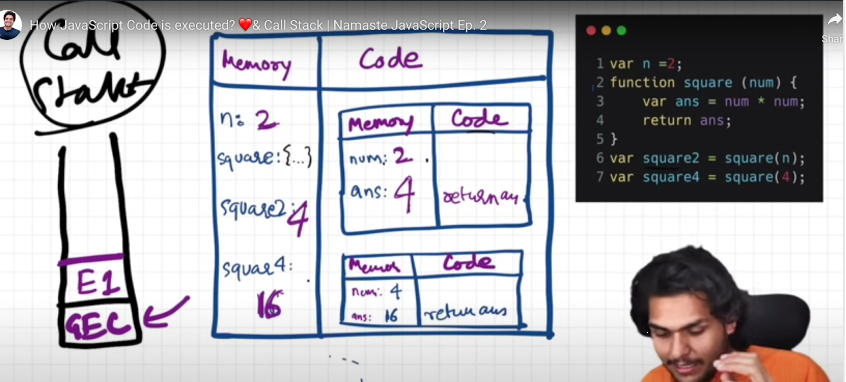 How JavaScript Code is executed? ❤️& Call Stack | Namaste JavaScript Ep. 2
Share
Call
Stack
E1
GEC
Memory
Code
n: 2
square: {...}
square2: 4
squae4:
16
Memory
Code
num: 2
ans: 4
return an
Code
num: 4
ans: 16
return ans
1 var n =2;
2 function square (num) {
3 var ans = num * num;
4 return ans;
5 }
6 var square2 = square(n);
7 var square4 = square(4);